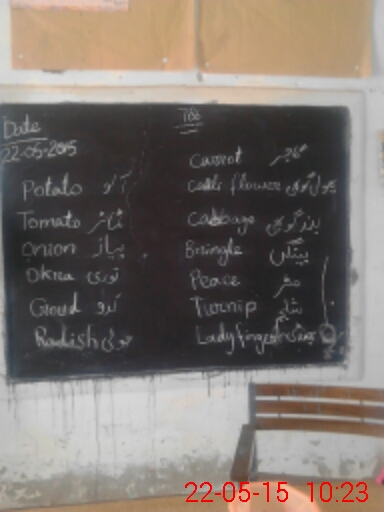 Date
22-05-2015
Potato آلو
Tomato ٹماٹر
Onion پیاز
Okra توری
Groud کدو
Radish مولی
Carrot گاجر
flower پھول گوبھی
Cabbage بند گوبھی
Bringle بینگن
Peace مٹر
Turnip شلغم
Ladyfinger
22-05-15 10:23